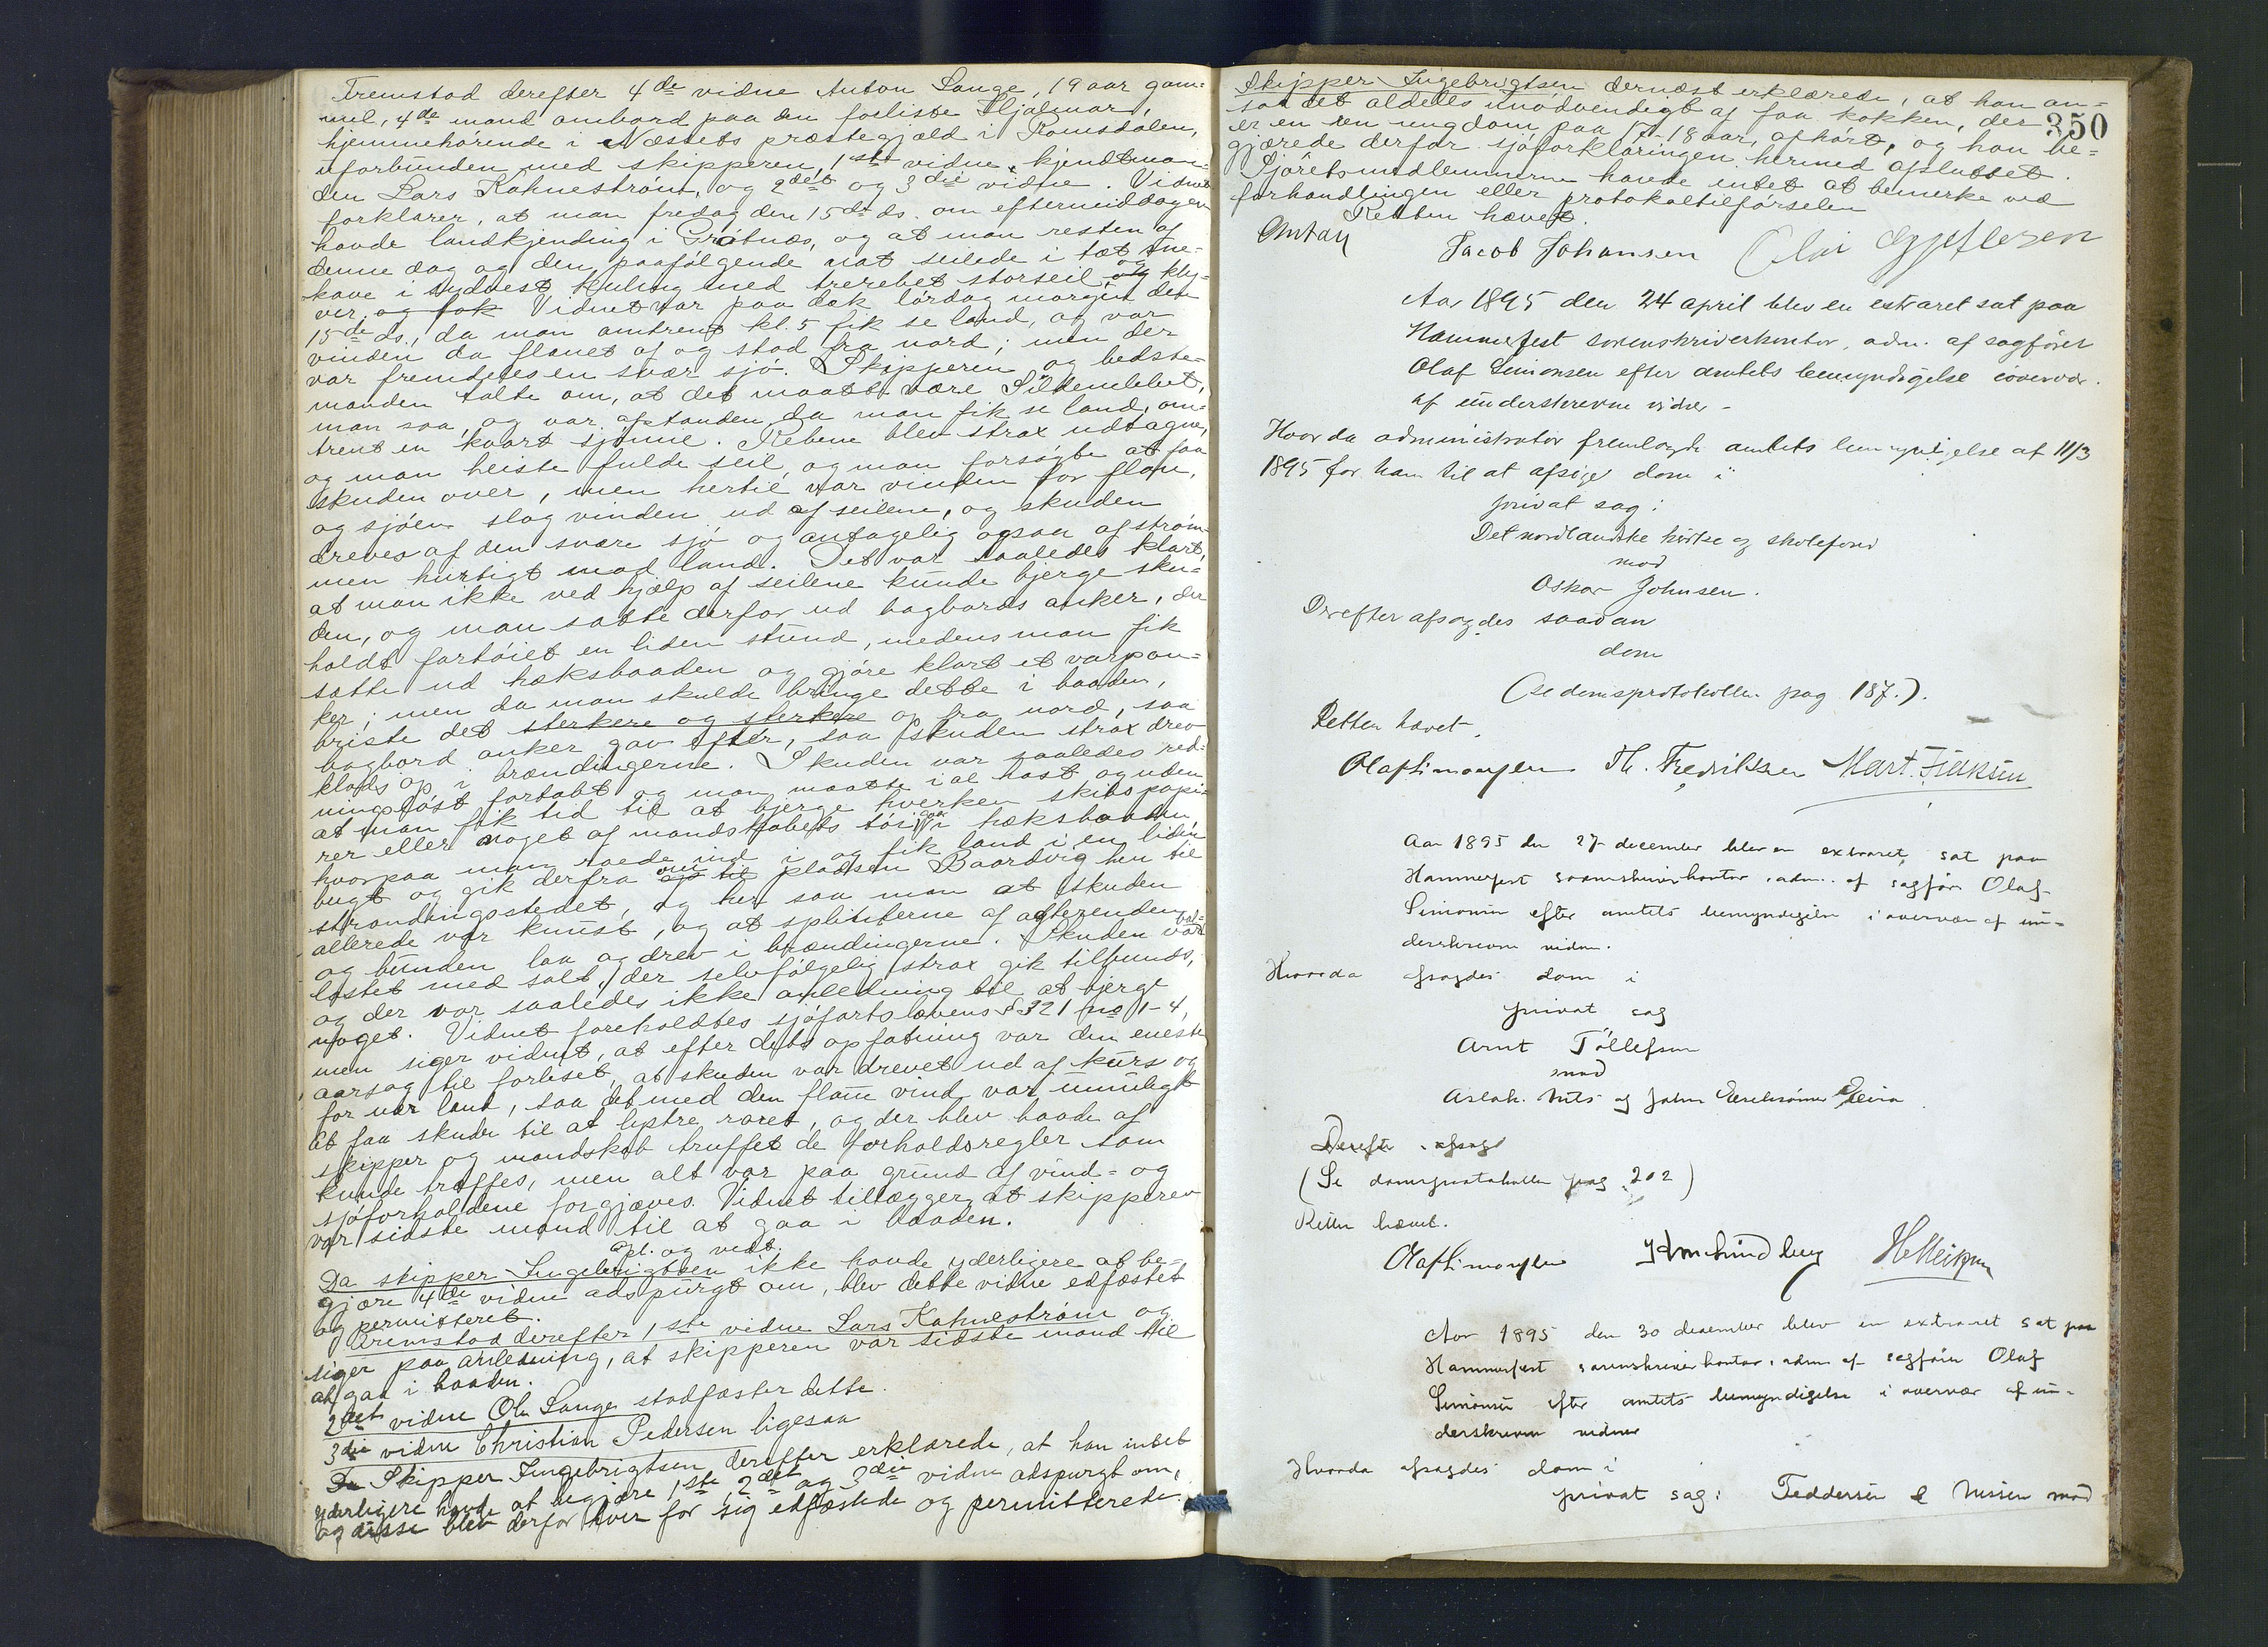 Fremstod derefter 4de vidne Anton Lange, 19 aar gam=
mel, 4de mand ombord paa den forliste Hjalmar,
hjemmehörende i Næssets præstegjæld i Romsdalen,
uforbunden med skipperen, 1ste vidne, kjendtman-
den Lars Kahneström, og 2det og 3die vidne. Vidnet
forklarer, at man fredag den 15de ds. om eftermiddagen
havde landkjending i Gråtnæs, og at man resten af
denne dag og den paafölgende nat seilede i tæt sne-
kave i sydvest kuling med trerebet storseil, og kly-
ver, og fok Vidnet var paa dæk lördag morgen den
15de ds., da man omtrent kl. 5 fik se land, og var
vinden da flauet af og stod fra nord; men der
var fremdeles en svær sjö. Skipperen og bedste-
manden talte om, at det maatte være Sildemlebut,
man saa, og var afstanden, da man fik se land, om=
trent en kvart sjömil. Rebene blev strax udtagne,
og man heiste fulde seil, og man forsögte at faa
skuden over, men hertil var vinden for flau,
og sjöen slog vinden ud af seilene, og skuden
dreves af den svære sjö og antagelig ogsaa af ström-
men hurtigt mod land. Det var saaledes klart,
at man ikke ved hjælp af seilene kunde bjerge sku-
den, og man satte derfor ud bagbords anker, der
holdt fartöiet en liden stund, medens man fik
satte ud hæksbaaden og gjöre klart et varpan=
ker; men da man skulde bringe dette i baaden,
briste det sterkere og sterkere op fra nord, saa
bagbord anker gav efter, saa skuden strax drev
klods op i brændingerne. Skuden var saaledes red-
ningslöst fortabt og man maatte i al hast og uden
at man fik tid til at bjerge hverken skibspapi-
rer eller noget af mandskabets töi gaa i hæksbaaden,
hvorpaa man roede ind i og fik land i en liden
bugt og gik derfra over til pladsen Baardvig hen til
strandingsstedet, og her saa man at skuden
allerede var knust, og at splitterne af agterenden
og bunden laa og drev i brændingerne. Skuden var bal-
lastet med salt, der selvfölgelig strax gik tilbunds,
og der var saaledes ikke anledning til at bjerge
noget. Vidnet foreholdtes sjöfartslovens § 321 no 1-4,
men siger vidnet, at efter dets opfatning var den eneste
aarsag til forliset, at skuden var drevet ud af kurs og
for nær land, saa at med den flaue vind var umuligt
at faa skuden til at lystre roret, og der blev baade af
skipper og mandskab truffet de forholdsregler som
kunde træffes, men alt var paa grund af vind= og
sjöforholdene forgjæves. Vidnet tillægger, at skipperen
var sidste mand til at gaa i baaden.
Opl. og vedt.
Da skipper Ingebrigtsen ikke havde yderligere at be-
gjære 4de vidne adspurgt om, blev dette vidne edfæstet
og permitteret.
Fremstod derefter 1ste vidne Lars Kahneström og
siger paa anledning, at skipperen var sidste mand til
at gaa i baaden.
2det vidne Ole Lange stadfæster dette.
3die vidne Christian Pedersen ligesaa
Da Skipper Ingebrigtsen derefter erklærede, at han intet
yderligere havde at begjære 1ste, 2det og 3die vidne adspurgt om,
og disse blev derfor hver for sig edfæstede og permitterede.
Skipper Ingebrigtsen dernæst erklærede, at han an=
saa det aldeles unödvendigt at faa kokken, der
er en ung dom paa 17-18 aar, afhört, og han be=
gjærede derfor sjöforklaringen hermed afsluttet.
350
Sjöretsmedlemmerne havde intet at bemerke ved
forhandlingen eller protokoltilförselen
Retten hævet.
Jacob Johansen
Aar 1895 den 24 april blev en extraret sat paa
Hammerfest sorenskriverkontor, adm. af sagförer
Olaf Simonsen efter amtets bemyndigelse i overvær
af underskrevne vidner -
Hvor da administrator fremlagde amtets bemyndigelse af 11/3
1895 for ham til at afsige dom i
privat sag:
Det nordlandske kirke og skolefond
mod
Oskar Johnsen.
Derefter afsagdes saadan
dom
(se domsprotokollen pag 187.).
Retten hævet.
Olaf Simonsen Th. Fredriksen Mart. Isaksen
Aar 1895 den 27 december blev en extraret sat paa
Hammerfest sorenskriverkontor, adm. af sagförer Olaf
Simonsen efter amtets bemyndigelse i overvær af un=
derskrevne vidner.
Hvorda afsagdes dom i
privat sag
Arnt Töllefsen
mod
Aslak. Nils og John
Derefter afsagt
(Se domsprotokollen pag 202)
Retten hævet.
Olaf Simonsen
Aar 1895 den 30 december blev en extraret sat paa
Hammerfest sorenskriverkontor, adm. af sagförer Olaf
Simonsen efter amtets bemyndigelse i overvær af un-
derskrevne vidner
Hvorda afsagdes dom i
privat sag: Feddersen & Nissen mod